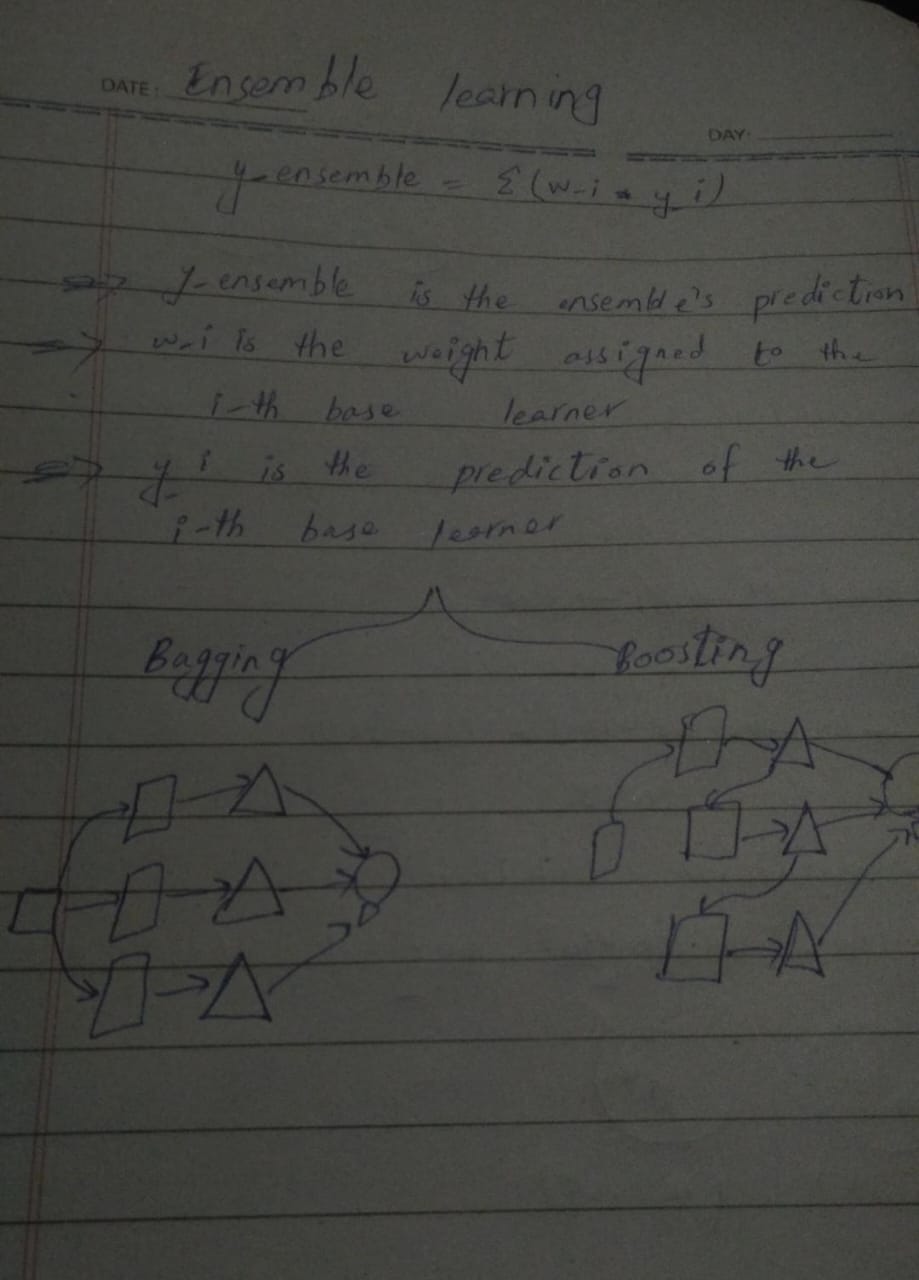 DATE: Ensemble learning
DAY:
y-ensemble = Σ(w-i * y_i)
y-ensemble is the ensemble's prediction
w-i is the weight assigned to the
i-th base learner
y_i is the prediction of the
i-th base learner
Bagging Boosting